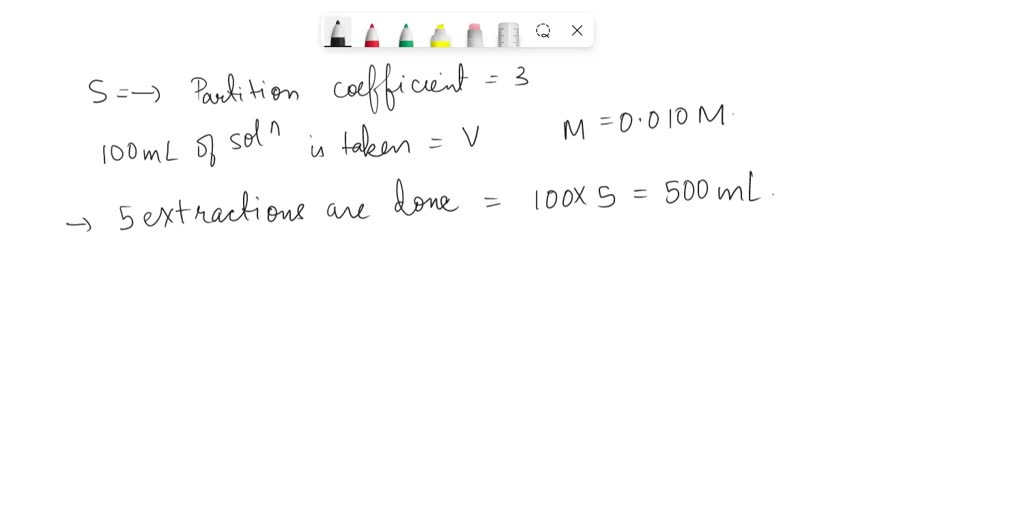 S =→ Partition coefficient = 3
100mL of solⁿ is taken = V M = 0.010 M.
→ 5 extractions are done = 100 x 5 = 500 mL.